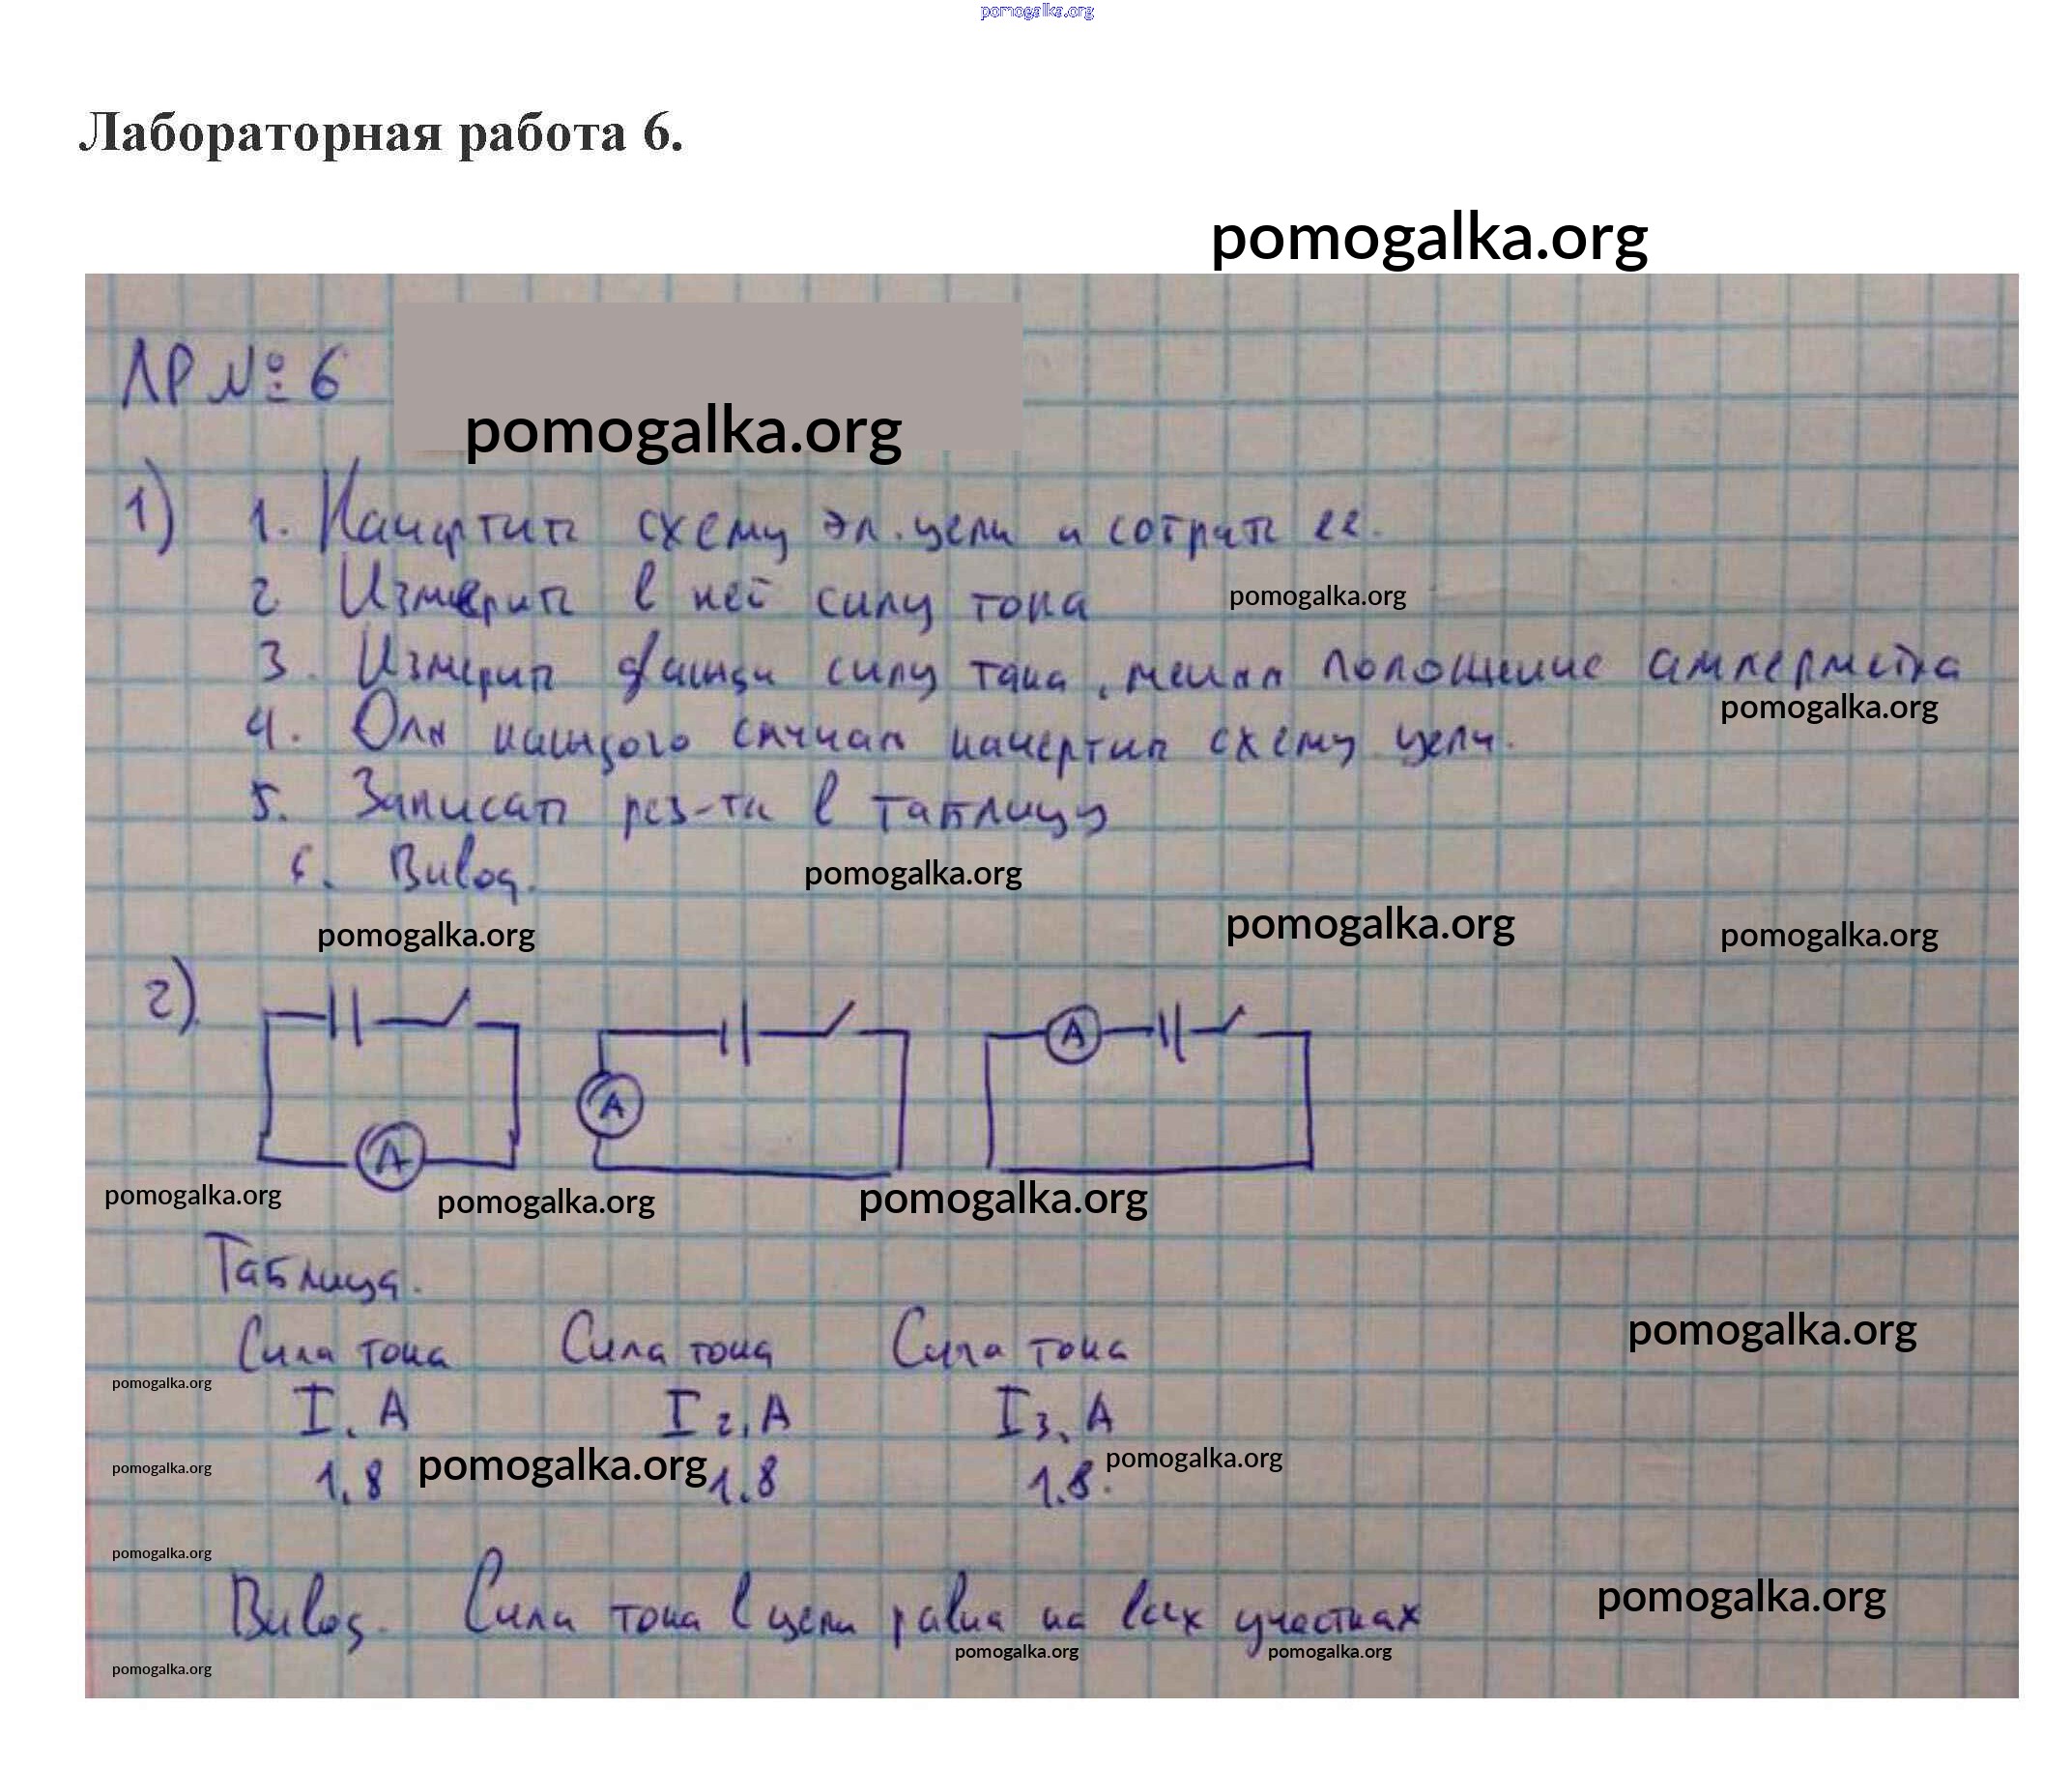 pomogalka.org
Лабораторная работа 6.
pomogalka.org
ЛР № 6
pomogalka.org
1) 1. Начертить схему эл. цепи и собрать ее.
2 Измерить в ней силу тока
pomogalka.org
3. Измерить дважды силу тока, меняя положение амперметра
pomogalka.org
4. Для каждого случая начертить схему цепи.
5. Записать рез-ты в таблицу
6. Вывод.
pomogalka.org
pomogalka.org
pomogalka.org
pomogalka.org
2)
A A A
pomogalka.org
pomogalka.org
pomogalka.org
Таблица.
Сила тока Сила тока Сила тока
pomogalka.org
pomogalka.org
I, A I2, A I3, A
pomogalka.org
1,8 pomogalka.org 1,8 1,8. pomogalka.org
pomogalka.org
Вывод. Сила тока в цепи равна на всех участках
pomogalka.org
pomogalka.org
pomogalka.org
pomogalka.org
pomogalka.org